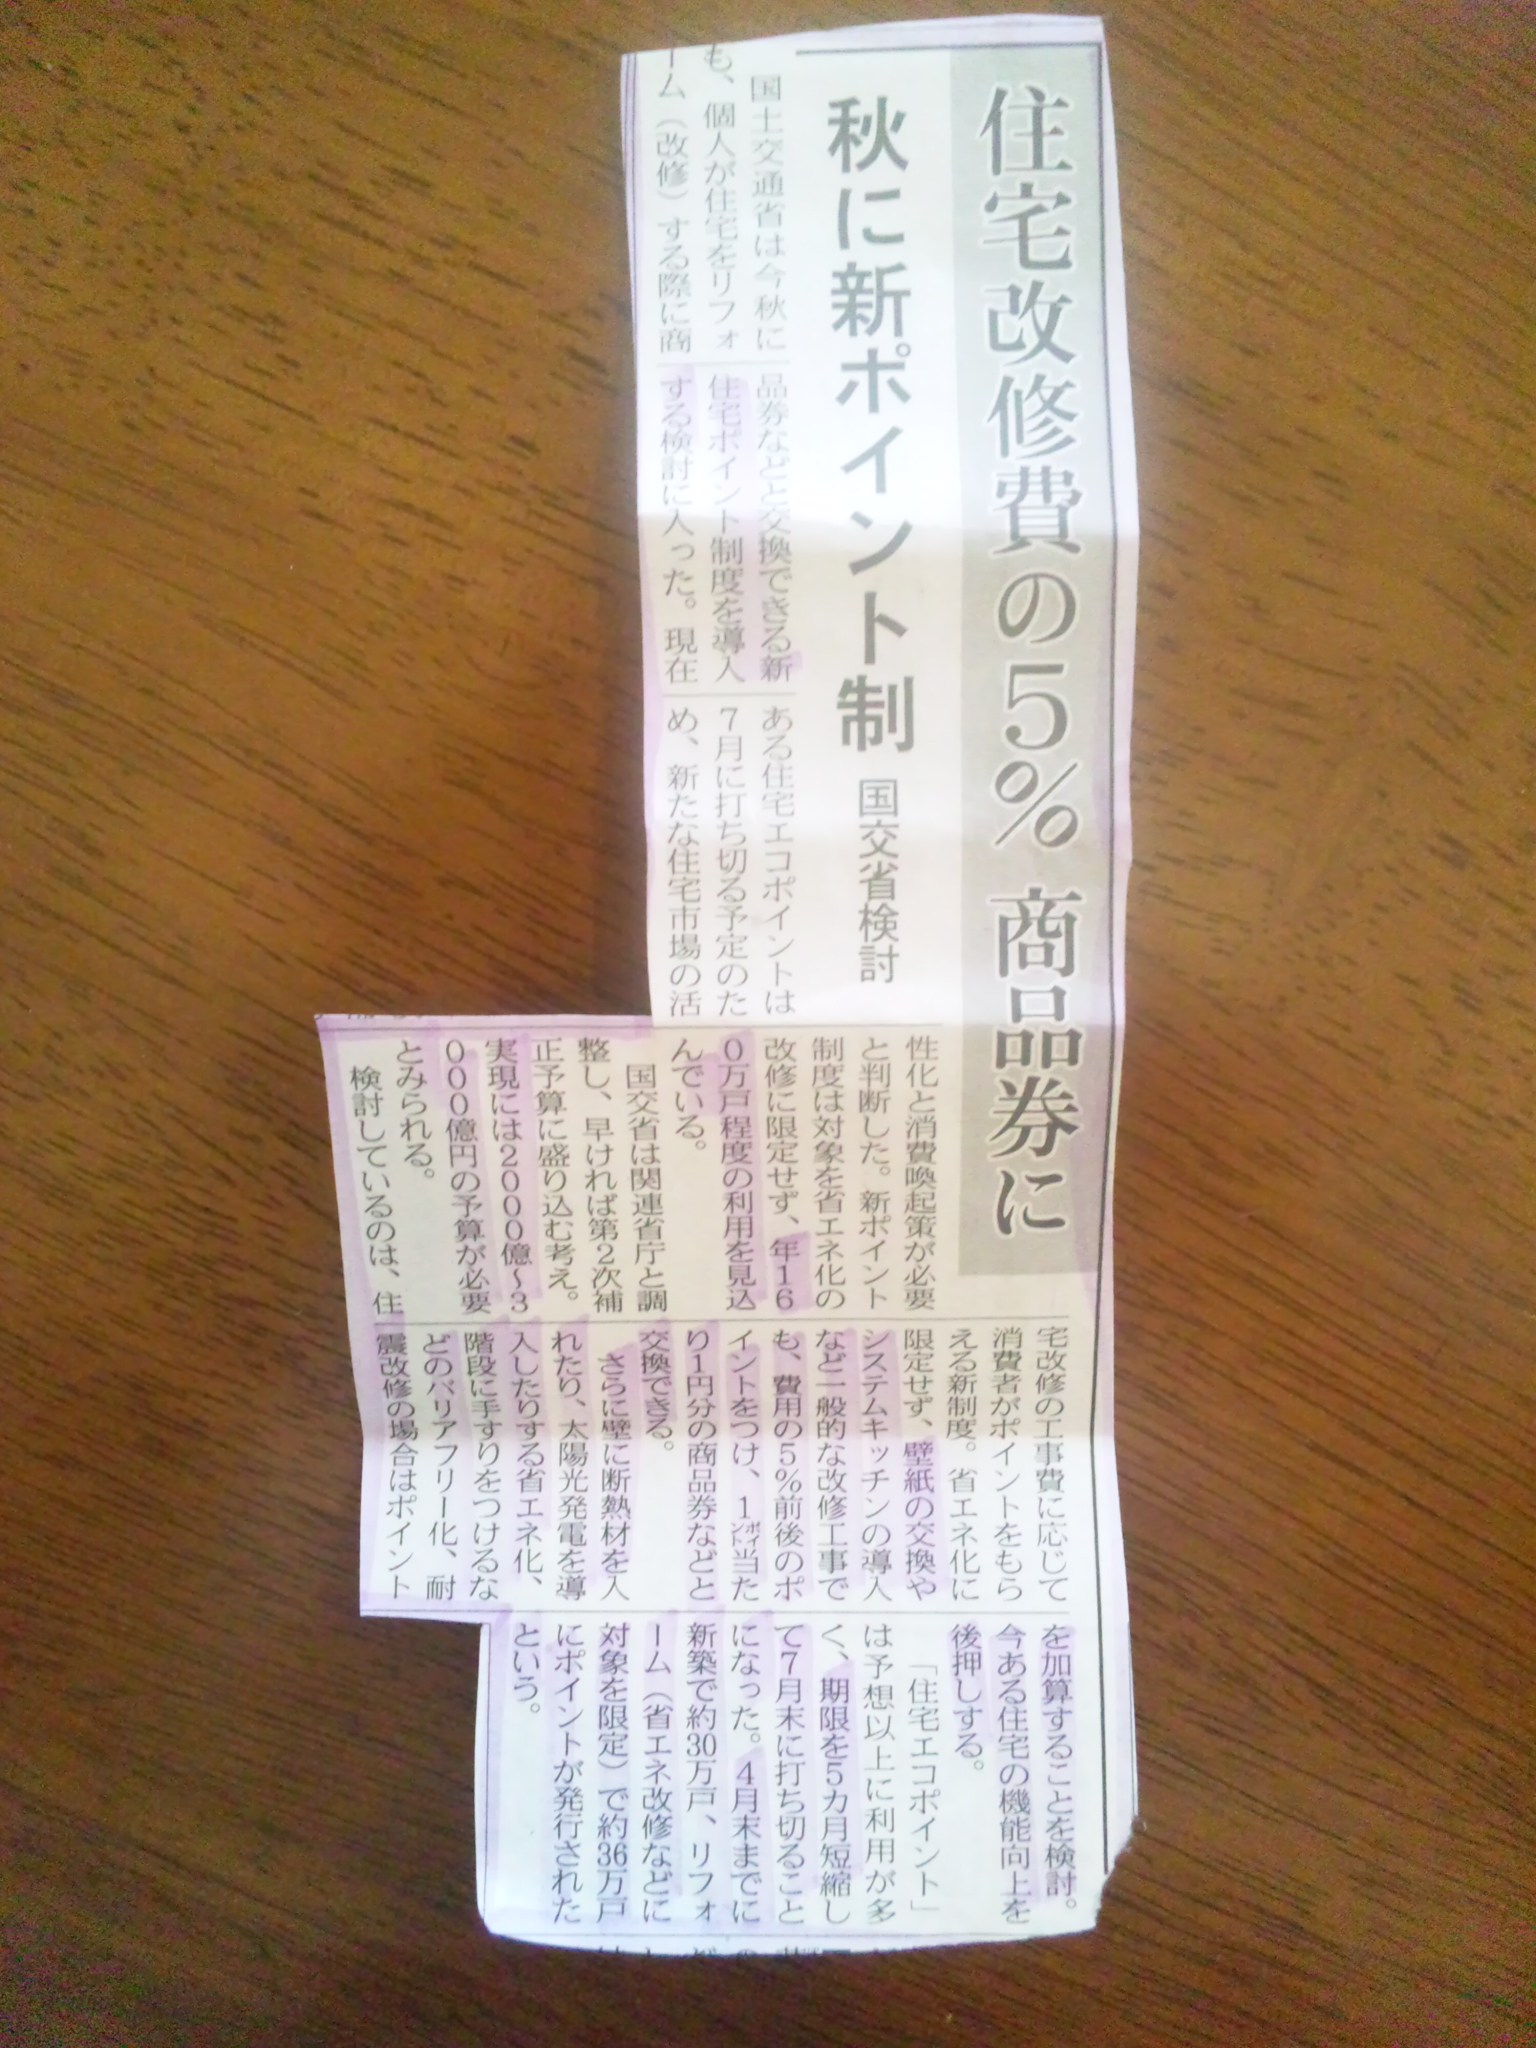 住宅改修費の5% 商品券に
秋に新ポイント制
国交省検討
国土交通省は今秋に
も、個人が住宅をリフォ
ーム(改修)する際に商
品券などと交換できる新
住宅ポイント制度を導入
する検討に入った。現在
ある住宅エコポイントは
7月に打ち切る予定のた
め、新たな住宅市場の活
性化と消費喚起策が必要
と判断した。新ポイント
制度は対象を省エネ化の
改修に限定せず、年16
0万戸程度の利用を見込
んでいる。
国交省は関連省庁と調
整し、早ければ第2次補
正予算に盛り込む考え。
実現には2000億〜3
000億円の予算が必要
とみられる。
検討しているのは、住
宅改修の工事費に応じて
消費者がポイントをもら
える新制度。省エネ化に
限定せず、壁紙の交換や
システムキッチンの導入
など一般的な改修工事で
も、費用の5%前後のポ
イントをつけ、1ポイント当た
り1円分の商品券などと
交換できる。
さらに壁に断熱材を入
れたり、太陽光発電を導
入したりする省エネ化、
階段に手すりをつけるな
どのバリアフリー化、耐
震改修の場合はポイント
を加算することを検討。
今ある住宅の機能向上を
後押しする。
「住宅エコポイント」
は予想以上に利用が多
く、期限を5カ月短縮し
て7月末に打ち切ること
になった。4月末までに
新築で約30万戸、リフォ
ーム(省エネ改修などに
対象を限定)で約36万戸
にポイントが発行された
という。